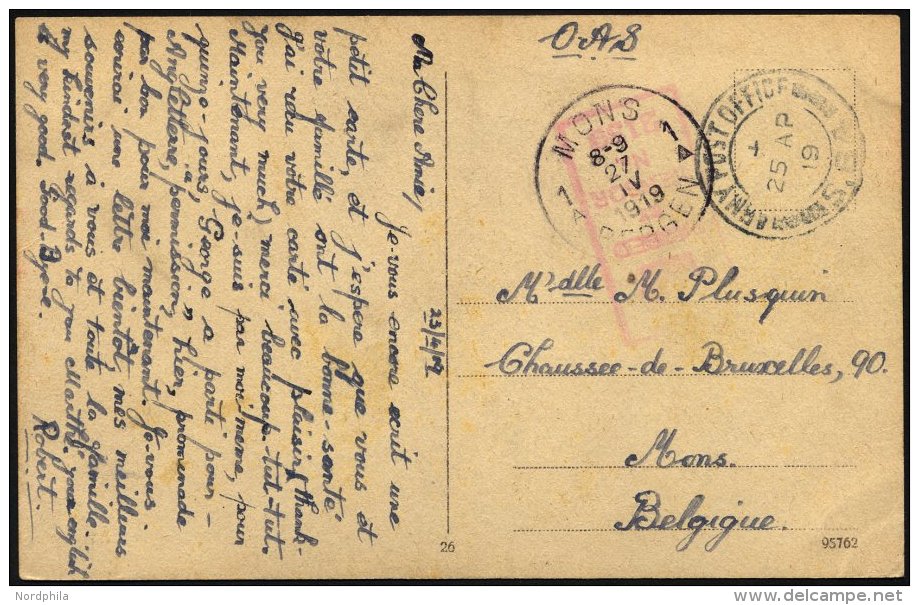 O.A.S
MONS
8-9
27
IV
1919
BERGEN
1 A
1 A
ARMY POST OFFICE
25 AP
19
S.E.
Mr dlle M. Plusquin
Chaussee-de-Bruxelles, 90.
Mons.
Belgique.
26
95762
23/4/19
Ma Chere Amie,
Je-vous encore ecrit une
petit carte, et j'espere que vous et
votre famille sont la bonne-santé
J'ai reçu votre carte avec plaisir (thank-
you very much) merci beaucoup-tut-tut.
Maintenant, je-suis par moi meme, pour
quinze-jours, George a parti pour-
Angleterre, à permission, hier, promenade
pas bon pour moi maintenant. Je-vous
courai une lettre bientot, mes meilleurs
souvenirs à vous et toute la famille...
my kindest regards to you Marthe, your english
is very good. Good Bye.
Robert.
Nordphila
www.delcampe.net